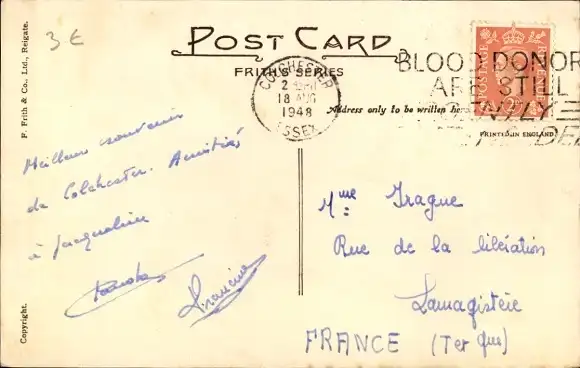 3€
POST CARD
FRITH'S SERIES
F. Frith & Co., Ltd., Reigate.
COLCHESTER
18 AUG
1948
ESSEX
BLOOD DONORS
ARE STILL
POSTAGE
REVENUE
Address only to be written here
PRINTED IN ENGLAND
Meilleur souvenir
de Colchester. Amitiés
à Jacqueline
Francine
Copyright.
Mme Trague
Rue de la libération
Lamagistère
FRANCE (Ter que)